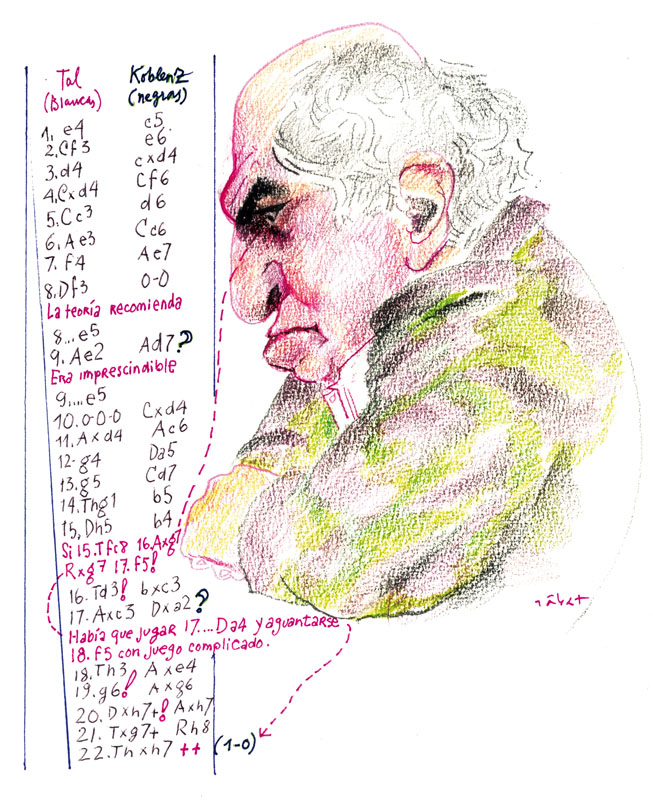 Tal Koblenz
(Blancas) (negras)
1. e4 c5
2. Cf3 e6
3. d4 cxd4
4. Cxd4 Cf6
5. Cc3 d6
6. Ae3 Cc6
7. f4 Ae7
8. Df3 0-0
La teoría recomienda
8... e5
9. Ae2 Ad7?
Era imprescindible
9.... e5
10. 0-0-0 Cxd4
11. Axd4 Ac6
12- g4 Da5
13. g5 Cd7
14. Thg1 b5
15. Dh5 b4
Si 15. Tfc8 16. Axg7
Rxg7 17. f5!
16. Td3! bxc3
17. Axc3 Dxa2?
Había que jugar 17.... Da4 y aguantarse
18. f5 con juego complicado.
18. Th3 Axe4
19. g6! Axg6
20. Dxh7+! Axh7
21. Txg7+ Rh8
22. Thxh7 ++ (1-0)